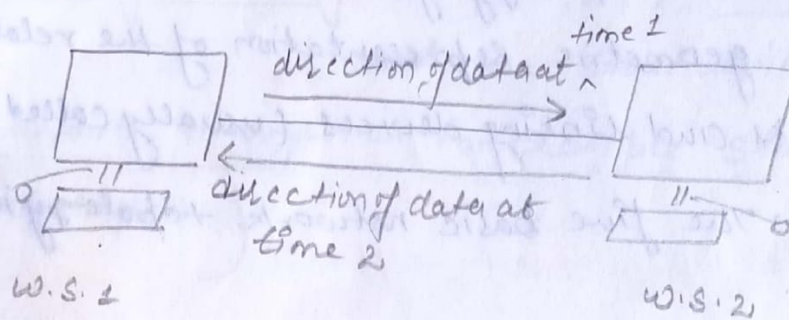 time 1
direction of data at ^
direction of data at
time 2
W.S. 1
W.S. 2